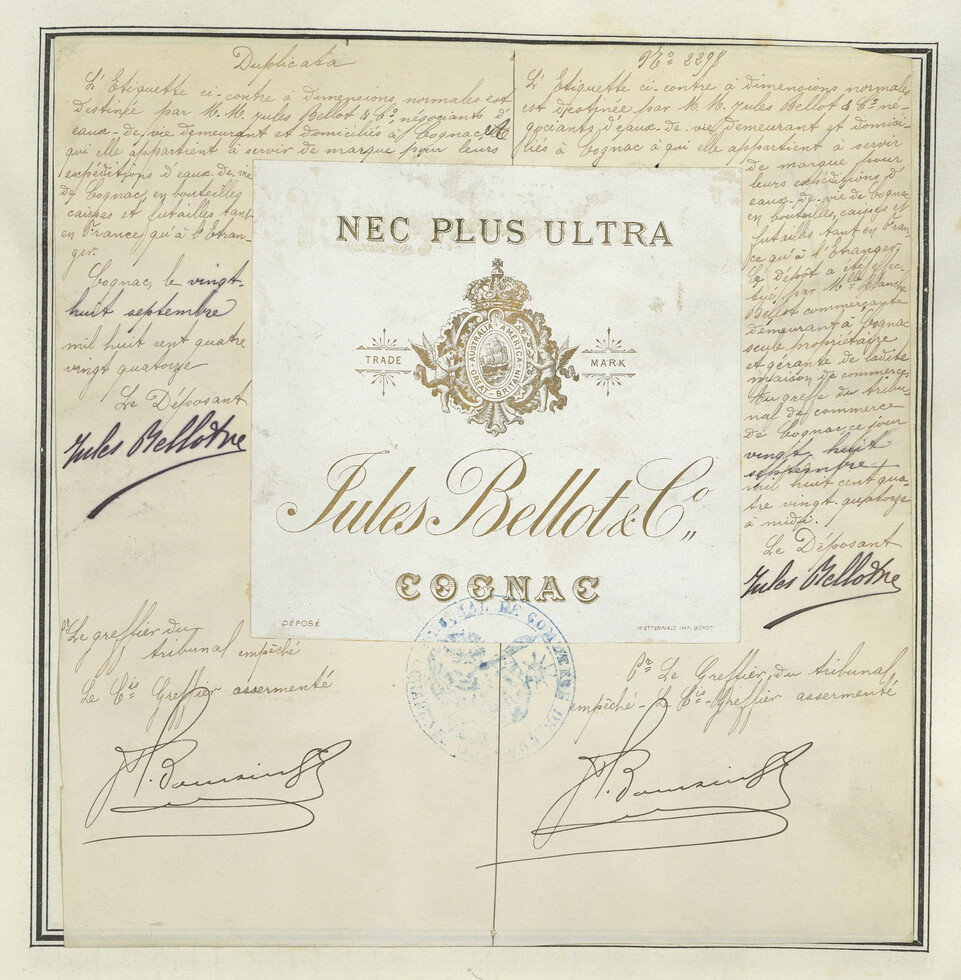 Duplicata
L'Etiquette ci-contre à dimensions normales est
destinée par M. M. Jules Bellot & Co. négociants d'
eaux-de-vie demeurant et domiciliés à Cognac, à
qui elle appartient à servir de marque pour leurs
expéditions d'eaux-de-vie
de Cognac, en bouteilles
caisses et futailles tant
en France, qu'à l'Etran-
ger.
Cognac, le vingt-
huit septembre
mil huit cent quatre
vingt quatorze
Le Déposant
Jules Bellot & Co
pr Le greffier du
tribunal empêché
Le Cis Greffier assermenté
No 2298
L'Etiquette ci-contre à dimensions normales
est destinée par M. M. Jules Bellot & Co né-
gociants d'eaux-de-vie, demeurant et domici-
liés à Cognac à qui elle appartient à servir
de marque pour
leurs expéditions d'
eaux-de-vie de Cognac
en bouteilles, caisses et
futailles tant en Fran-
ce qu'à l'Etranger.
Le dépôt a été effec-
tué par Mlle Blanche
Bellot commerçante
demeurant à Cognac
seule propriétaire
et gérante de ladite
maison de commerce
au greffe du tribu-
nal de commerce
de Cognac ce jour
vingt huit
septembre
mil huit cent qua-
tre vingt quatorze
à midi.
Le Déposant
Jules Bellot & Co
Pr Le Greffier, du tribunal
empêché - Le Cis Greffier assermenté
NEC PLUS ULTRA
TRADE MARK
AUSTRALIA AMERICA
GREAT-BRITAIN
Jules Bellot & Co,,
COGNAC
DÉPOSÉ
WETTERWALD IMP. BORDx
TRIBUNAL DE COMMERCE DE